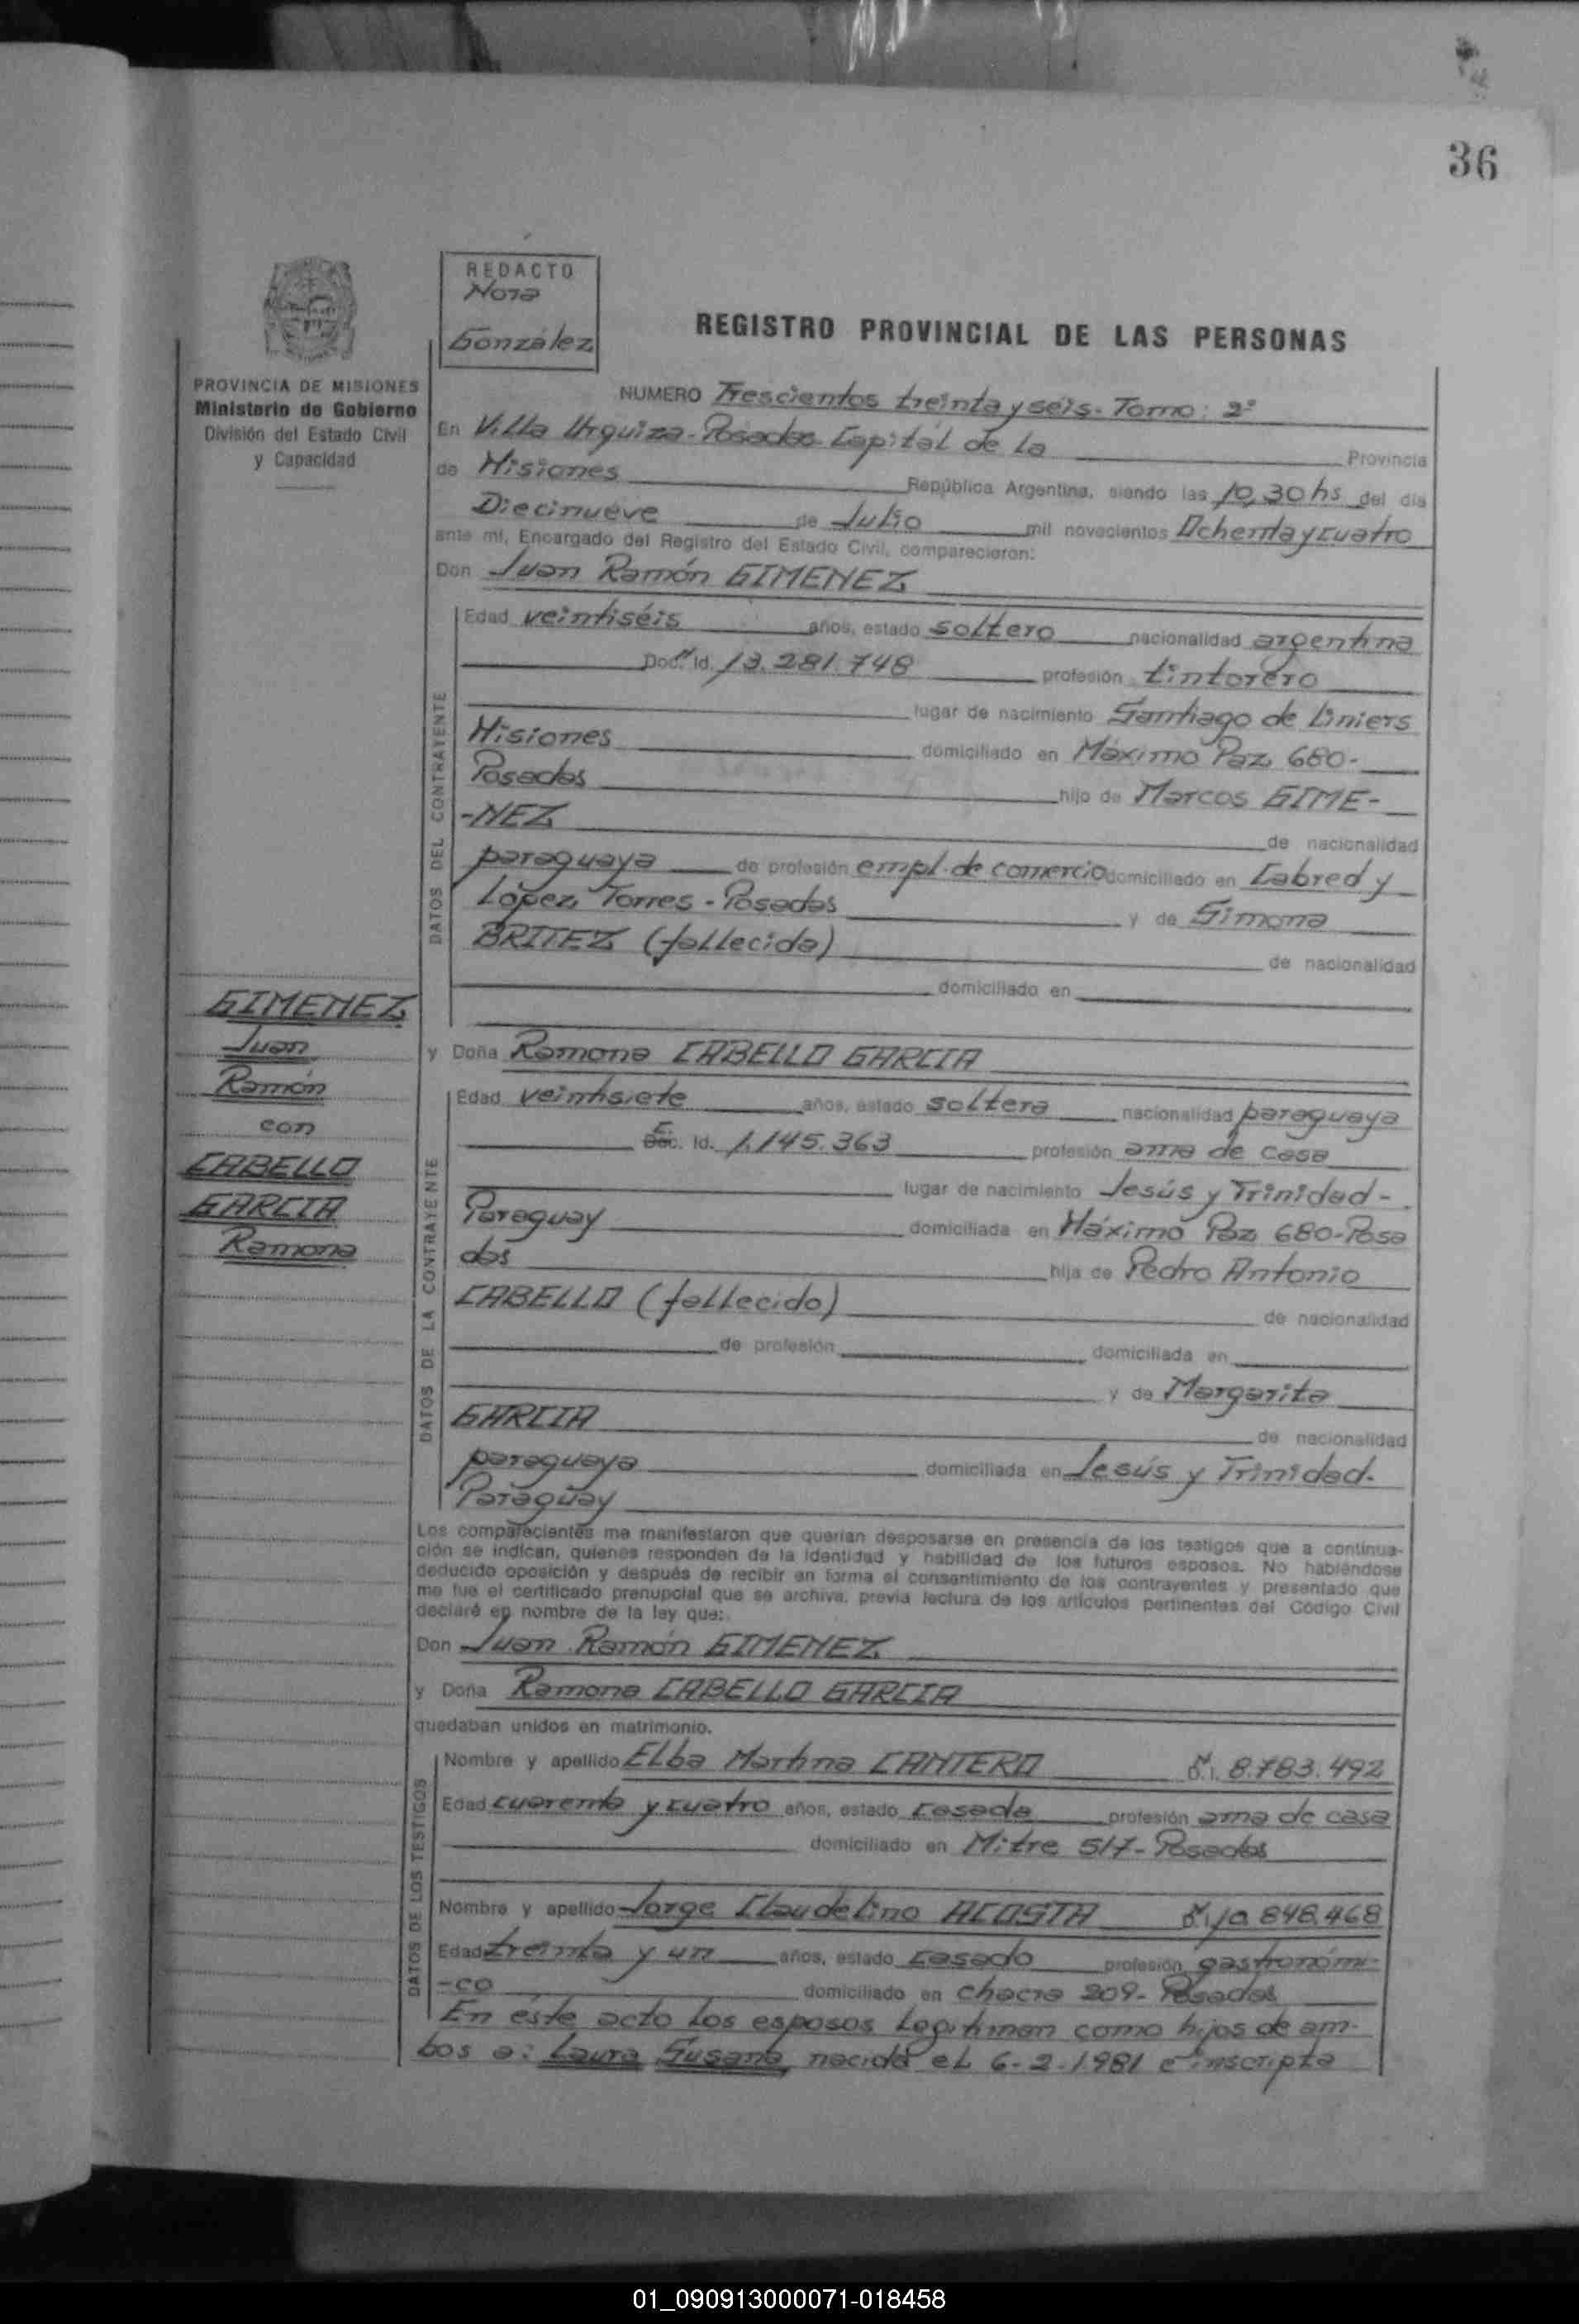 36
REDACTO
Nora
González
REGISTRO PROVINCIAL DE LAS PERSONAS
PROVINCIA DE MISIONES
Ministerio de Gobierno
División del Estado Civil
y Capacidad
NUMERO Trescientos treinta y seis. Tomo: 2º
En Villa Urquiza-Posadas Capital de la Provincia
de Misiones República Argentina, siendo las 10,30 hs del día
Diecinueve de Julio mil novecientos Ochenta y cuatro
ante mí, Encargado del Registro del Estado Civil, comparecieron:
Don Juan Ramón GIMENEZ
DATOS DEL CONTRAYENTE
Edad veintiséis años, estado soltero nacionalidad argentina
Doc. Id. 13.281.748 profesión tintorero
lugar de nacimiento Santiago de Liniers
Misiones domiciliado en Máximo Paz 680-
Posadas hijo de Marcos GIME-
-NEZ de nacionalidad
paraguaya de profesión empl. de comercio domiciliado en Cabred y
López Torres - Posadas y de Simona
BRITEZ (fallecida) de nacionalidad
domiciliado en
GIMENEZ
Juan
Ramón
con
CABELLO
GARCIA
Ramona
y Doña Ramona CABELLO GARCIA
DATOS DE LA CONTRAYENTE
Edad veintisiete años, estado soltera nacionalidad paraguaya
C. Id. 1.145.363 profesión ama de casa
lugar de nacimiento Jesús y Trinidad-
Paraguay domiciliada en Máximo Paz 680-Posa
das hija de Pedro Antonio
CABELLO (fallecido) de nacionalidad
de profesión domiciliada en
y de Margarita
GARCIA de nacionalidad
paraguaya domiciliada en Jesús y Trinidad.
Paraguay
Los comparecientes me manifestaron que querían desposarse en presencia de los testigos que a continua-
ción se indican, quienes responden de la identidad y habilidad de los futuros esposos. No habiéndose
deducido oposición y después de recibir en forma el consentimiento de los contrayentes y presentado que
me fue el certificado prenupcial que se archiva, previa lectura de los artículos pertinentes del Código Civil
declaré en nombre de la ley que:
Don Juan Ramón GIMENEZ
y Doña Ramona CABELLO GARCIA
quedaban unidos en matrimonio.
DATOS DE LOS TESTIGOS
Nombre y apellido Elba Martina CANTERO D.I. 8.783.492
Edad cuarenta y cuatro años, estado casada profesión ama de casa
domiciliado en Mitre 517- Posadas
Nombre y apellido Jorge Claudelino ACOSTA D.I. 10.848.468
Edad treinta y un años, estado casado profesión gastronómi-
-co domiciliado en chacra 209- Posadas
En este acto los esposos legitiman como hijos de am-
bos a: Laura Susana, nacida el 6-2-1981 e inscripta
01_090913000071-018458